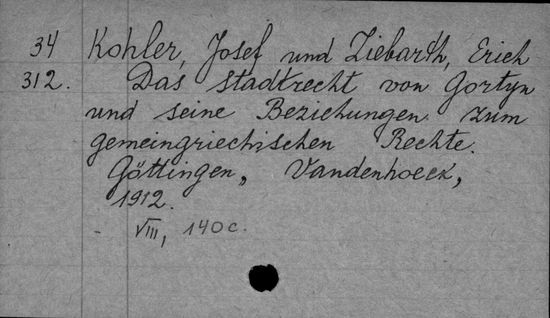 34 Kohler, Josef und Ziebarth, Erich
312. Das Stadtrecht von Gortyn
und seine Beziehungen zum
gemeingriechischen Rechte.
Göttingen, Vandenhoeck,
1912.
- VIII, 140 c.